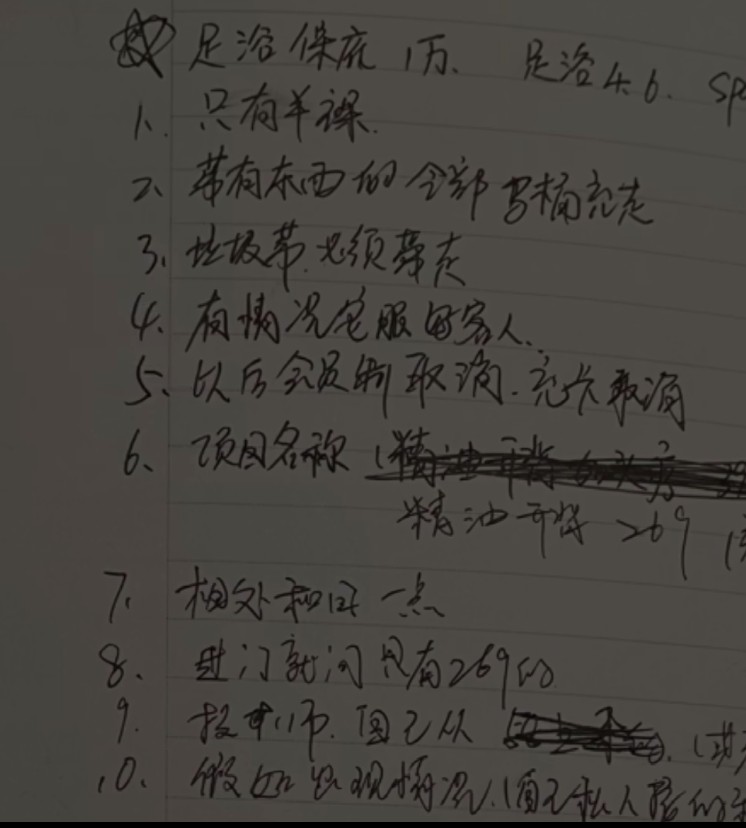 足浴保底1万、 足浴46. sp
1、只有半裸.
2、带有东西的全部马桶充走
3、垃圾带必须带走
4、有情况宅服客人.
5、以后会员制取消.充卡取消
6、项目名称
精油开背 269
7、相处和团一点
8、进门就问只有269的
9. 技师.自己从
10、假如出现情况.自己私人接的